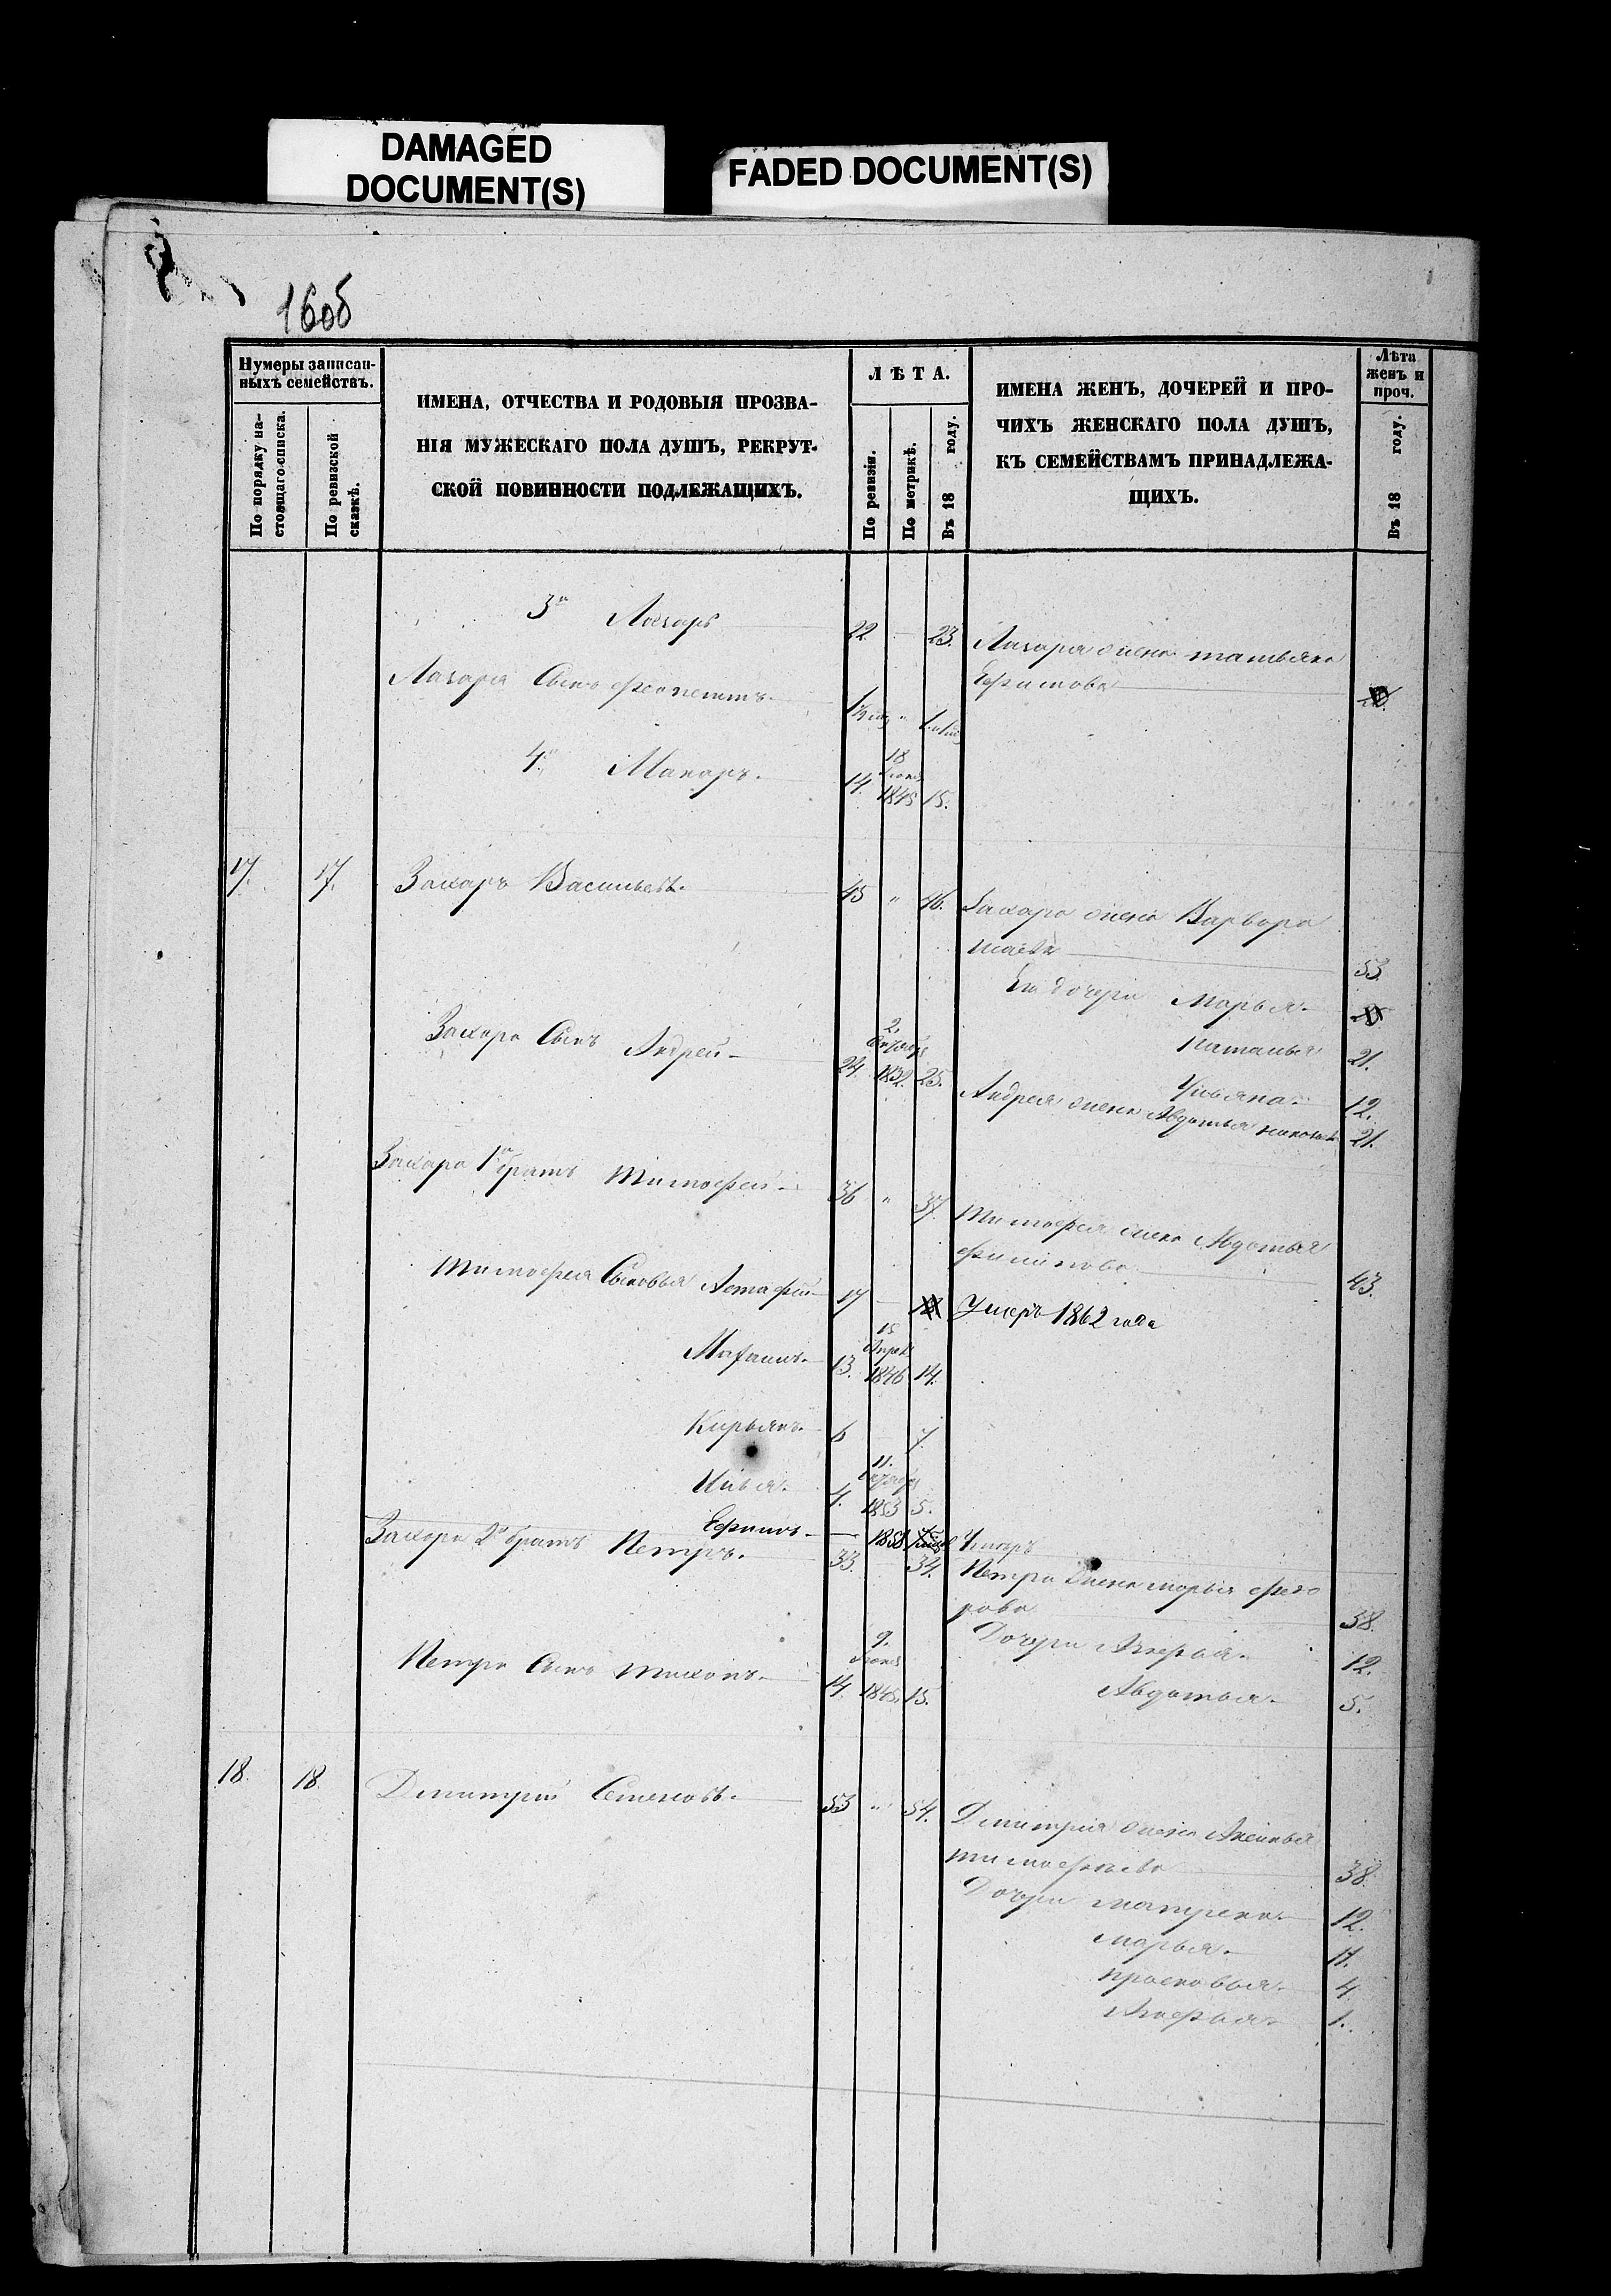 DAMAGED
DOCUMENT(S)
FADED DOCUMENT(S)
16об
Нумеры записан-
ныхъ семействъ.
По порядку на-
стоящаго списка.
По ревизской
сказкѣ.
ИМЕНА, ОТЧЕСТВА И РОДОВЫЯ ПРОЗВА-
НІЯ МУЖЕСКАГО ПОЛА ДУШЪ, РЕКРУТ-
СКОЙ ПОВИННОСТИ ПОДЛЕЖАЩИХЪ.
ЛѢТА.
По ревизіи.
По метрикѣ.
Въ 18 году.
ИМЕНА ЖЕНЪ, ДОЧЕРЕЙ И ПРО-
ЧИХЪ ЖЕНСКАГО ПОЛА ДУШЪ,
КЪ СЕМЕЙСТВАМЪ ПРИНАДЛЕЖА-
ЩИХЪ.
Лѣта
женъ и
проч.
Въ 18 году.
3й Лазарь 22 — 23. Лазаря жена татьяна
Ефимова
Лазаря Сынъ
4й Макаръ. 14. 18 1845 15.
17. 17. Захаръ Васильевъ. 45 " 46. Захара жена Варвара
53.
Его дочери Марья.
Наталья 21.
Захара Сынъ Андрей 24. 2. 1832. 25.
Ульяна. 12.
Андрея жена Авдотья 21.
Захара 1й братъ Тимофей 36 " 37. Тимофея жена Авдотья
филипова 43.
Тимофея Сыновья Астафий 17 — Умеръ 1862 года
13. 15 Апрѣля 1846 14.
Кирьянъ. 6 7
Илья. 4. 11. 1853 5.
Ефимъ. — 1858 Умеръ
Захара 2й братъ Петръ. 33. 34. Петра жена марья фего
рова 38.
Дочери Лукерья. 12.
Петра Сынъ тихонъ. 14. 9. 1845. 15.
Авдотья. 5.
18. 18. Димитрій Семеновъ. 53 " 54. Димитрія жена Аксинья
тимофеева 38.
Дочери матрена. 12.
марья. 11.
прасковья. 4.
Лукерья. 1.